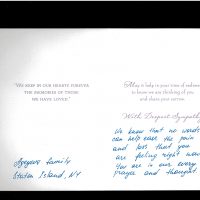 "WE KEEP IN OUR HEARTS FOREVER
THE MEMORIES OF THOSE
WE HAVE LOVED."
family
Staten Island, NY
May it help in your time of sadness
to know we are thinking of you
and share your sorrow.
With Deepest Sympathy
We know that no words
can help ease the pain
and loss that you
are feeling right now.
You are in our every
prayer and thought.